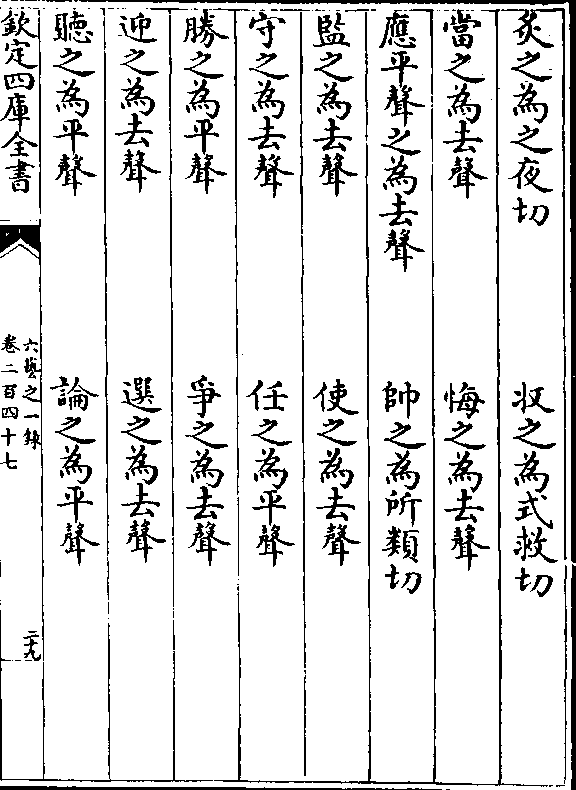 炙之為之夜切　収之為式救切
當之為去聲　悔之為去聲
應平聲之為去聲　帥之為所類切
監之為去聲　使之為去聲
守之為去聲　任之為平聲
勝之為平聲　爭之為去聲
迎之為去聲　選之為去聲
聽之為平聲　論之為平聲
欽定四庫全書
六藝之一録
卷二百四十七
二十九